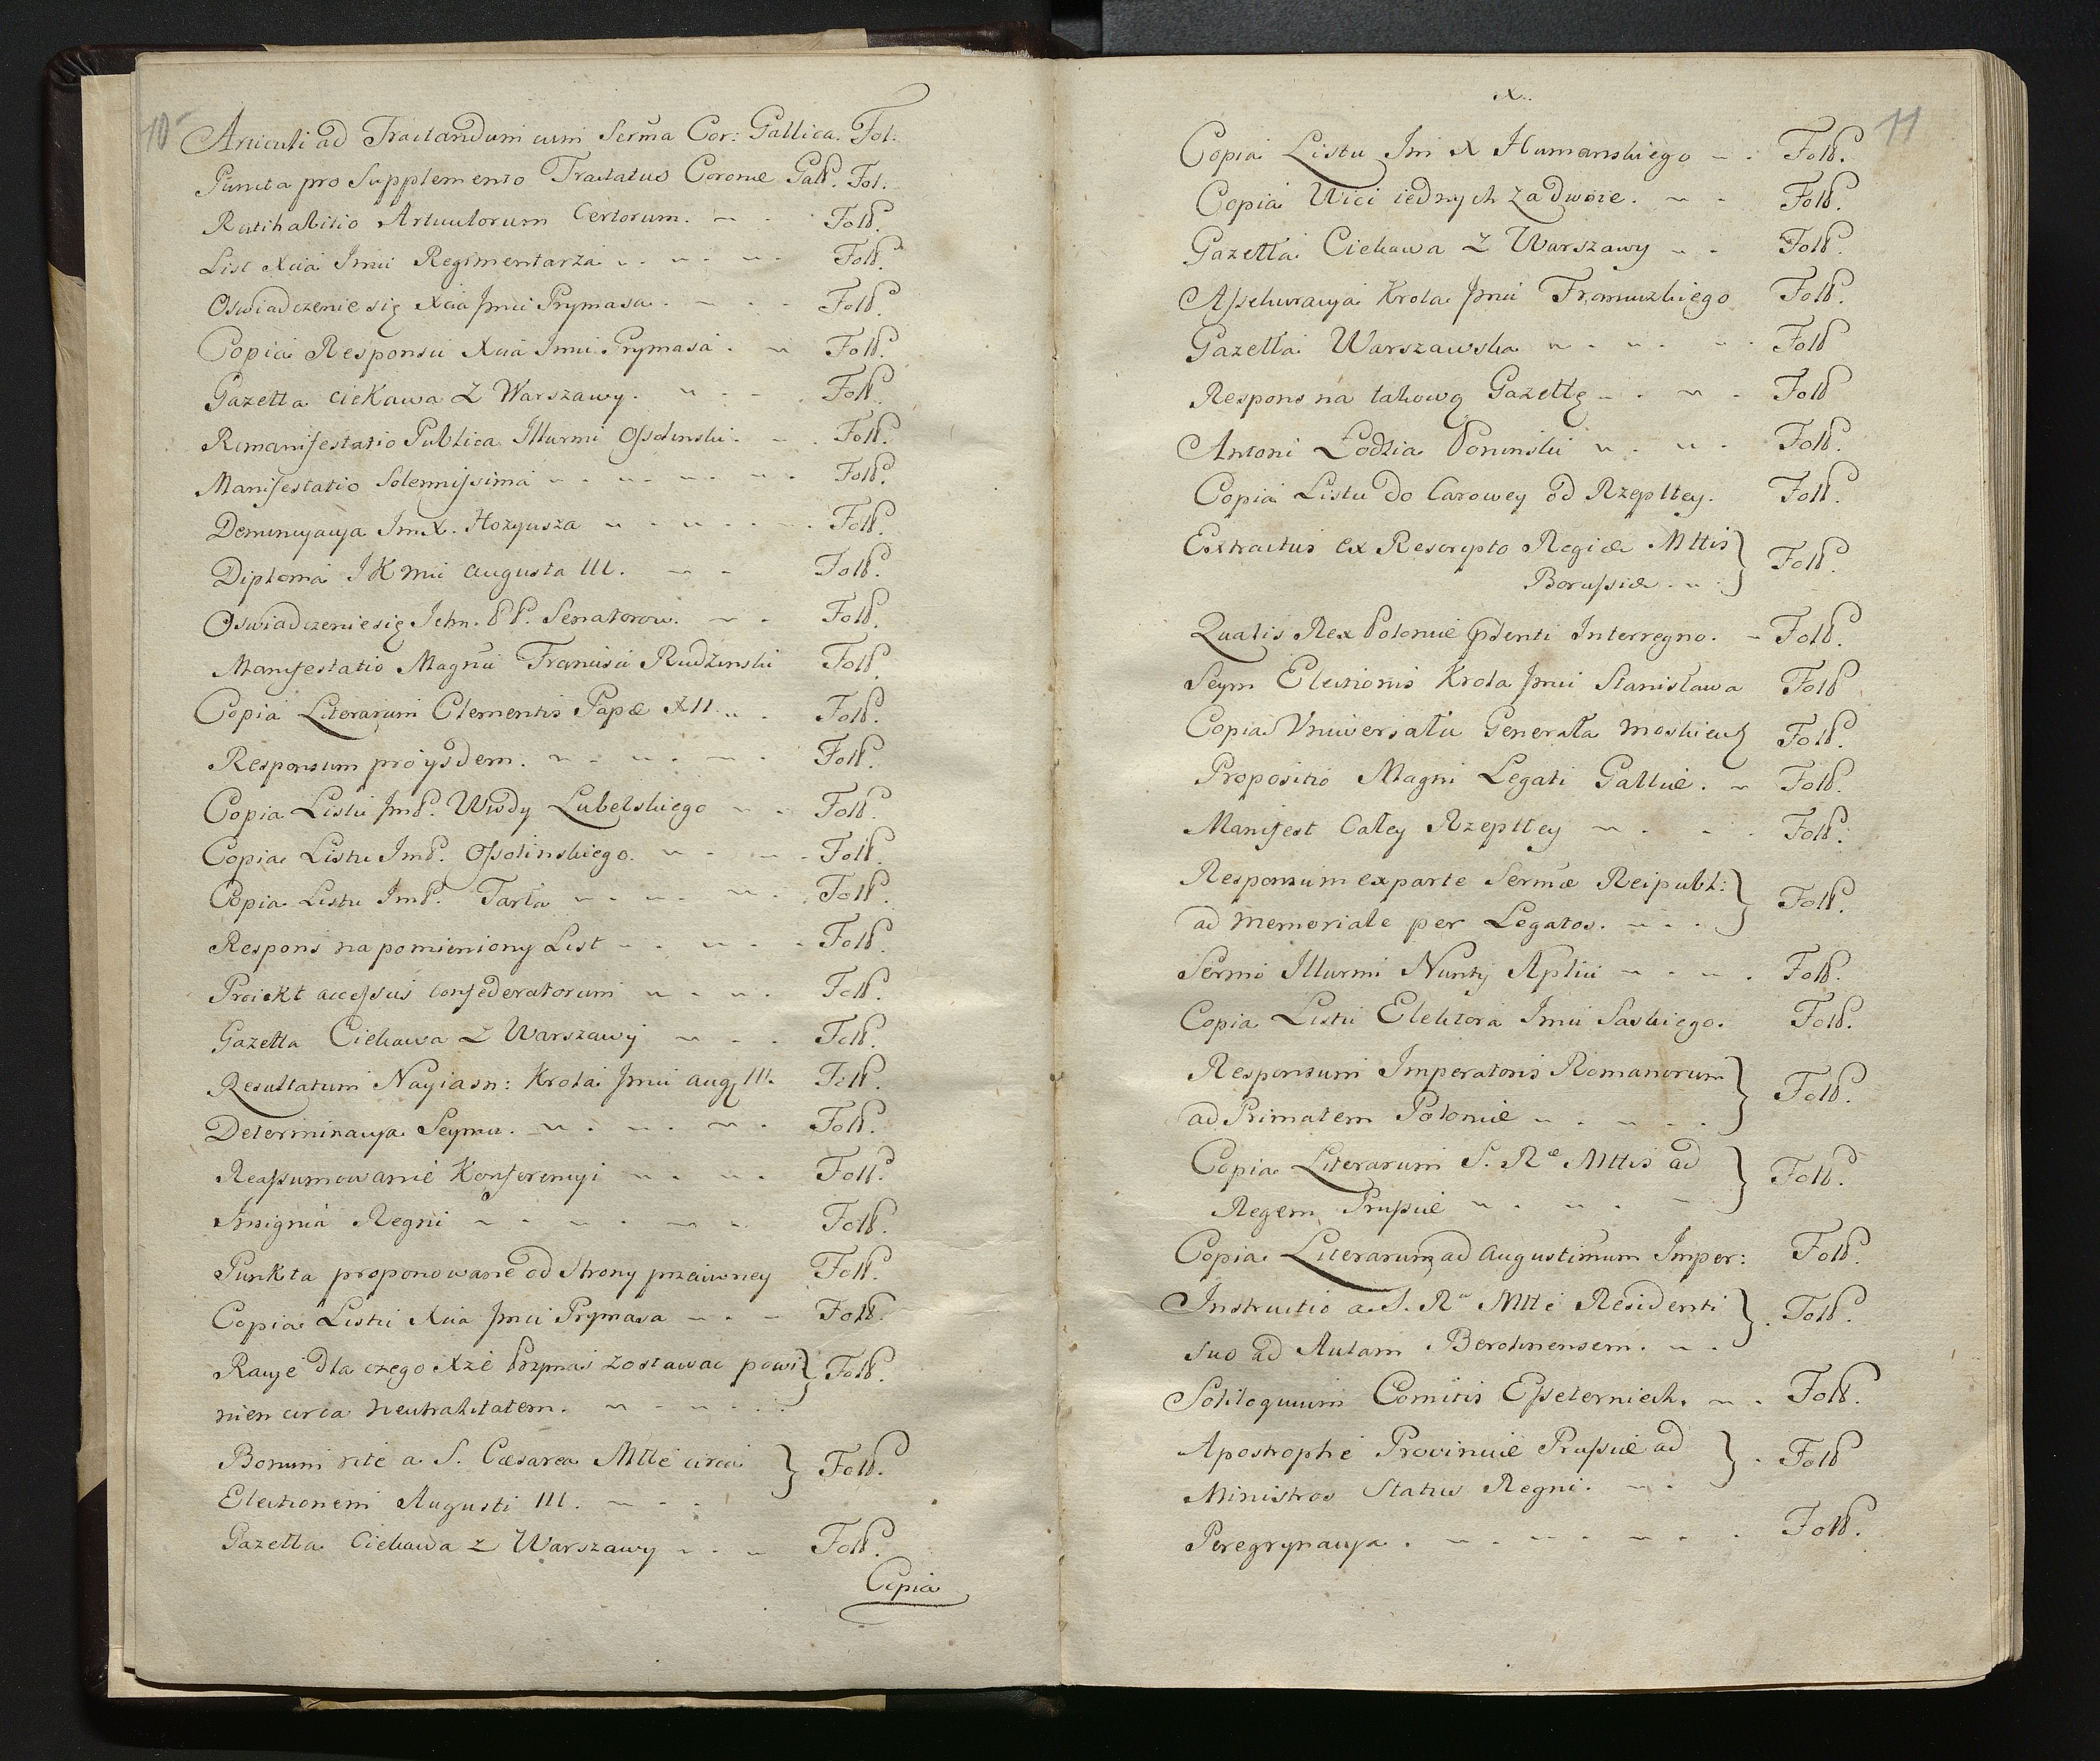 10
Articuli ad Tractandum cum Serma Cor: Gallica. Fol.
Puncta pro Supplemento Tractatus Coronæ Gall. Fol.
Ratihabitio Articulorum Certorum. Foll.
List Xcia Jmci Regimentarza Foll.
Oswiadczenie się Xcia Jmci Prymasa. Foll.
Copia Responsu Xcia Jmci Prymasa. Foll.
Gazetta ciekawa Z Warszawy. Foll.
Remanifestatio Publica Illurmi Ossolinski. Foll.
Manifestatio Solennissima Foll.
Denuncyacya Jm X. Hozyusza Foll.
Diploma J K Mci Augusta III. Foll.
Oswiadczenie się Jchm. PP. Senatorow. Foll.
Manifestatio Magnci Francisci Rudzinski Foll.
Copia Literarum Clementis Papæ XII. Foll.
Responsum pro ijsdem. Foll.
Copia Listu JmP. Wwdy Lubelskiego Foll.
Copia Listu JmP. Ossolinskiego. Foll.
Copia Listu JmP. Tarła Foll.
Respons na pomieniony List Foll.
Proiekt accessus Confederatorum Foll.
Gazetta Ciekawa Z Warszawy Foll.
Resultatum Nayiasn: Krola Jmci Aug III. Foll.
Determinacya Seymu. Foll.
Reassumowanie Konferencyi Foll.
Insignia Regni Foll.
Punkta proponowane od Strony przeciwney Foll.
Copia Listu Xcia Jmci Prymasa Foll.
Racye dla czego Xże Prymas zostawac powi Foll.
nien circa neutralitatem.
Bonum rite a S. Cæsarea Mtte circa Foll.
Electionem Augusti III.
Gazetta Ciekawa Z Warszawy Foll.
Copia
X.
11
Copia Listu Jm X Humanskiego Foll.
Copia Wici iednych za dwoie. Foll.
Gazetta Ciekawa Z Warszawy Foll.
Assekuracya Krola Jmci Francuzkiego Foll.
Gazetta Warszawska Foll
Respons na takową Gazettę Foll
Antoni Łodzia Poninski Foll.
Copia Listu do Carowey od Rzeplttey. Foll.
Extractus ex Rescripto Regiæ Mttis Foll.
Borussiæ.
Qualis Rex Poloniæ psenti Interregno. Foll.
Seym Electionis Krola Jmci Stanisława Foll
Copia Vniwersału Generała Moskiew Foll.
Propositio Magni Legati Galliæ. Foll.
Manifest Całey Rzeplttey Foll.
Responsum ex parte Sermæ Reipubl: Foll.
ad Memoriale per Legatos.
Sermo Illurmi Nuntij Aplici Foll.
Copia Listu Elektora Jmci Saskiego. Foll.
Responsum Imperatoris Romanorum Foll.
ad Primatem Poloniæ
Copia Literarum S. Ræ Mttis ad Foll.
Regem Prussiæ
Copia Literarum ad Augustimum Imper: Foll.
Instructio a S. Ra Mtte Residenti Foll.
suo ad Aulam Berolinensem.
Soliloquium Comitis Esseterniech. Foll.
Apostrophe Provinciæ Prussiæ ad Foll
Ministros Status Regni.
Peregrynacya. Foll.